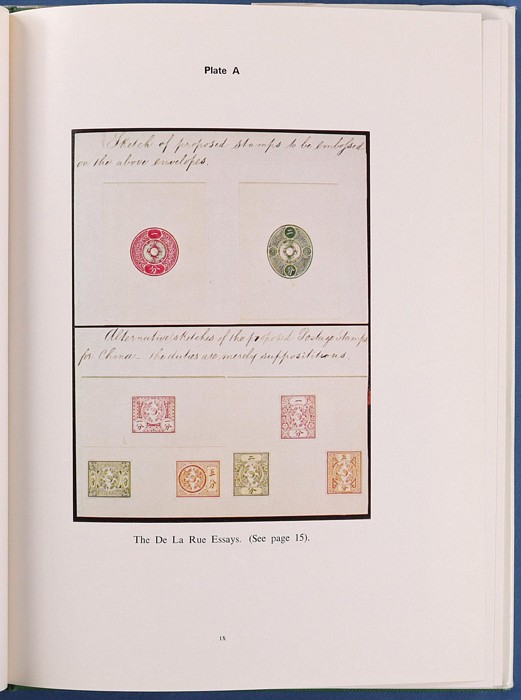 Plate A
Sketch of proposed stamps to be embossed
on the above envelopes.
一 二
分 分
Alternative sketches of the proposed Postage Stamps
for China — the duties are merely suppositions.
一分 一分
二分 五分 二分 五分
The De La Rue Essays. (See page 15).
18